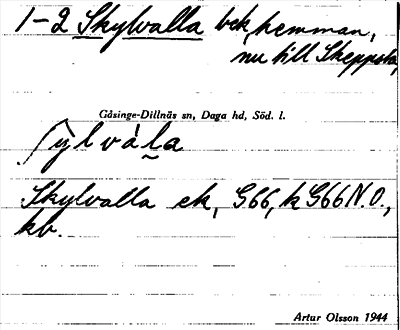 1-2 Skylvalla bek, hemman,
nu till Skeppsta,
Gåsinge-Dillnäs sn, Daga hd, Söd. l.
Skylvalla ek, G66, k G66 N.O.,
kb.
Artur Olsson 1944